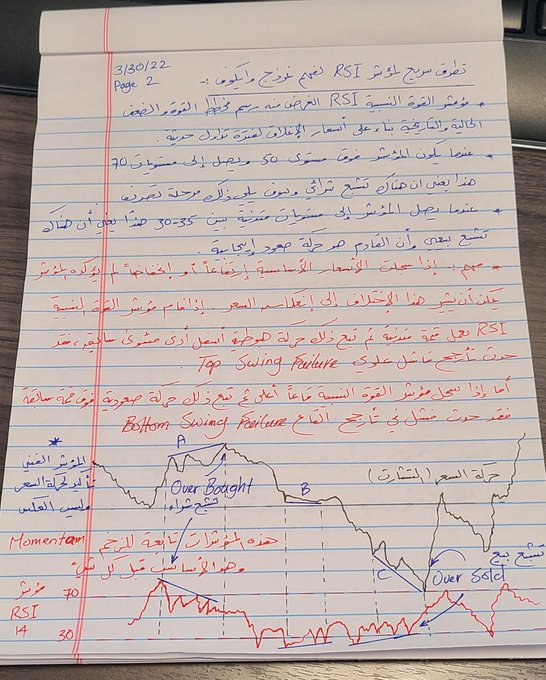 3/30/22
Page 2
تطرق سريع لمؤشر RSI لفهم نموذج وايكوف :-
* مؤشر القوة النسبية RSI الغرض منه رسم مخطط القوة والضعف
الحالية والتاريخية بناء على أسعار الإغلاق لفترة تداول حديثة.
* عندما يكون المؤشر فوق مستوى 50 ويصل إلى مستويات 70
هذا يعني ان هناك تشبع شرائي وسوف يلي ذلك مرحلة تصريف.
* عندما يصل المؤشر إلى مستويات متدنية بين 35-30 هذا يعني أن هناك
تشبع بيعي وأن القادم هو حركة صعود إيجابية.
* مهم: إذا سجلت الأسعار الأساسية إرتفاعاً أو إنخفاضاً لم يؤكده المؤشر
يمكن أن يشير هذا الإختلاف إلى إنعكاس السعر. إذا قام مؤشر القوة النسبية
RSI بعمل قمة متدنية ثم تبع ذلك حركة هبوطية أسفل أدنى مستوى سابق، فقد
حدث تأرجح فاشل علوي Top Swing Failure.
أما إذا سجل مؤشر القوة النسبية قاعاً أعلى ثم تبع ذلك حركة صعودية فوق قمة سابقة
فقد حدث فشل في تأرجح القاع Bottom Swing Failure
*
المؤشر الفني
تابع لحركة السعر
وليس العكس
A
Over Bought
تشبع شراء
B
حركة السعر (التشارت)
C
تشبع بيع
Over Sold
هذه المؤشرات تابعة للزخم Momentum
وهذا الأساس قبل كل شيء
مؤشر
RSI
14
70
30